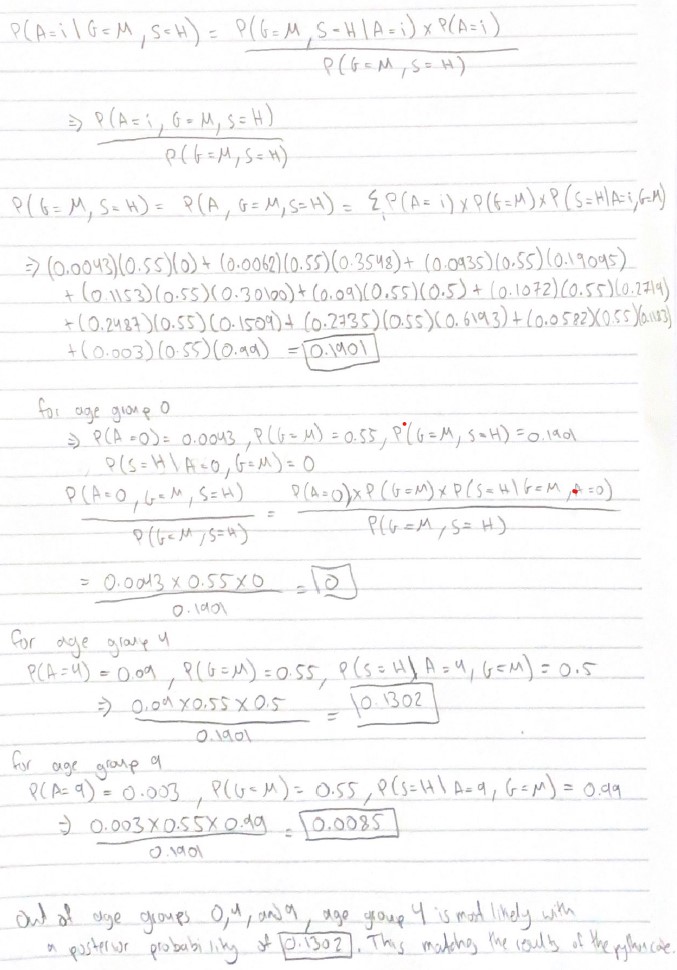 P(A=i | G=M, S=H) = P(G=M, S=H | A=i) x P(A=i)
P(G=M, S=H)
⇒ P(A=i, G=M, S=H)
P(G=M, S=H)
P(G=M, S=H) = P(A, G=M, S=H) = Σ P(A=i) x P(G=M) x P(S=H|A=i, G=M)
i
⇒ (0.0043)(0.55)(0) + (0.0062)(0.55)(0.3548) + (0.0935)(0.55)(0.19095)
+ (0.1153)(0.55)(0.30100) + (0.09)(0.55)(0.5) + (0.1072)(0.55)(0.2719)
+ (0.2487)(0.55)(0.1509) + (0.2735)(0.55)(0.6193) + (0.0582)(0.55)(0.1183)
+ (0.003)(0.55)(0.99) = 0.1901
for age group 0
⇒ P(A=0) = 0.0043, P(G=M) = 0.55, P(G=M, S=H) = 0.1901
P(S=H | A=0, G=M) = 0
P(A=0, G=M, S=H) = P(A=0) x P(G=M) x P(S=H | G=M, A=0)
P(G=M, S=H) P(G=M, S=H)
= 0.0043 x 0.55 x 0 = 0
0.1901
for age group 4
P(A=4) = 0.09, P(G=M) = 0.55, P(S=H | A=4, G=M) = 0.5
⇒ 0.09 x 0.55 x 0.5 = 0.1302
0.1901
for age group 9
P(A=9) = 0.003, P(G=M) = 0.55, P(S=H | A=9, G=M) = 0.99
⇒ 0.003 x 0.55 x 0.99 = 0.0085
0.1901
Out of age groups 0, 4, and 9, age group 4 is most likely with
a posterior probability of 0.1302. Thus matching the results of the python code.